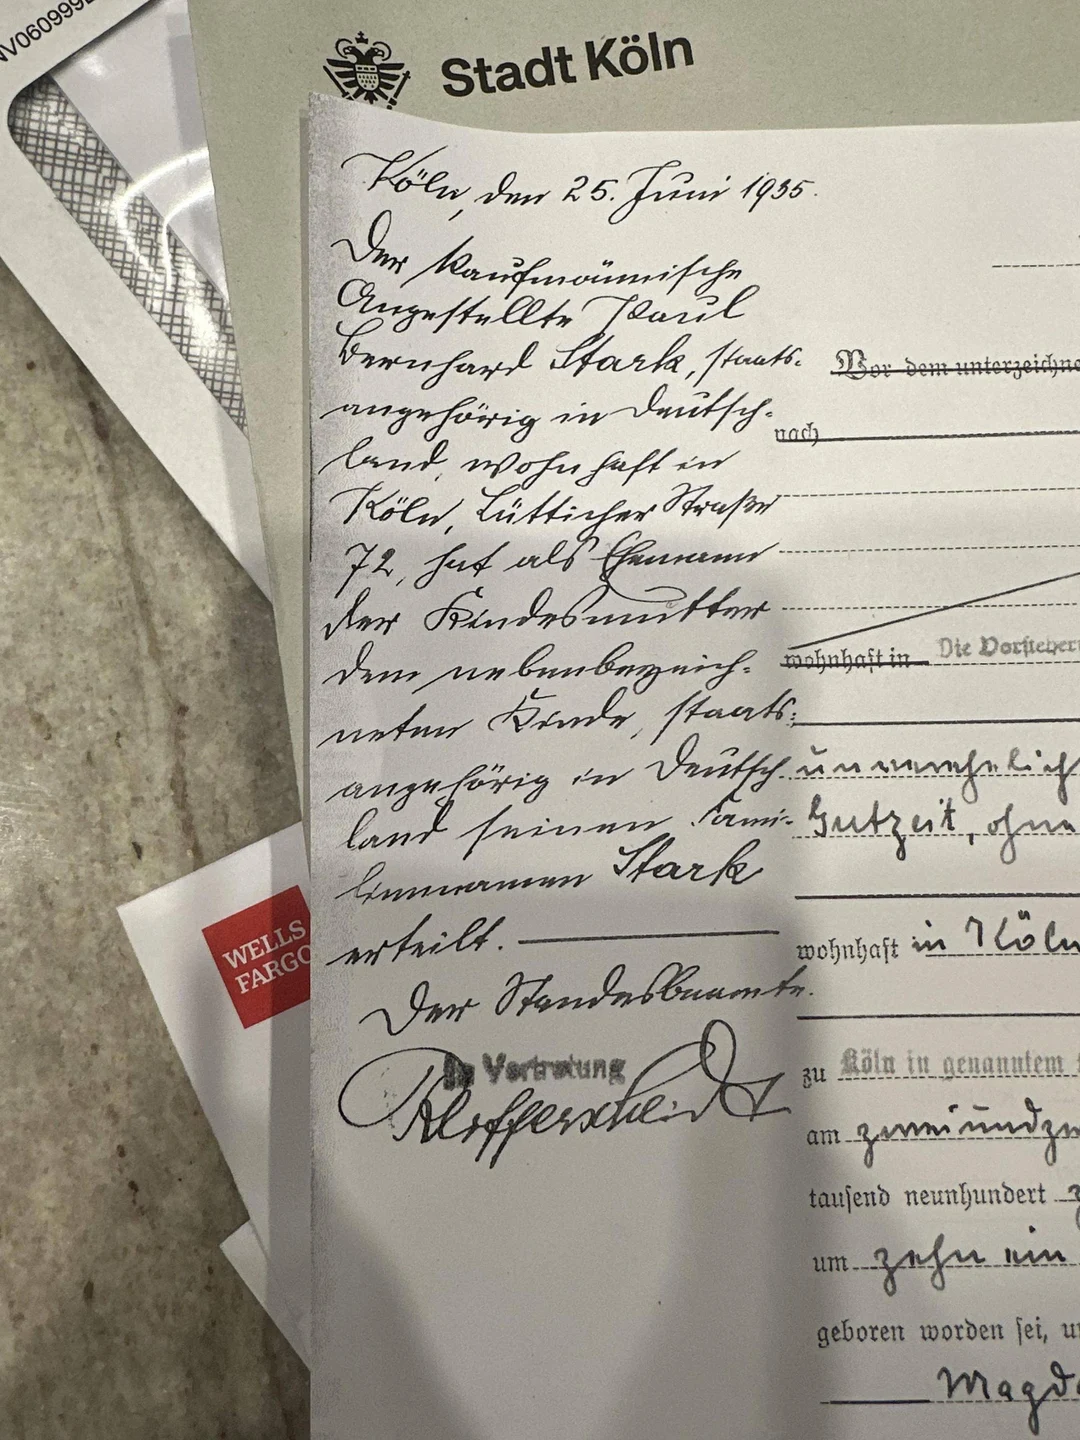 NV060999
Stadt Köln
Köln, den 25. Juni 1935.
Der kaufmännische
Angestellte Paul
Bernhard Stark, staats-
angehörig in Deutsch-
land, wohnhaft in
Köln, Lütticher Straße
72, hat als Ehemann
der Kindesmutter
dem nebenbezeich-
neten Kinde, staats-
angehörig in Deutsch-
land seinen Fami-
liennamen Stark
erteilt.
Der Standesbeamte.
In Vertretung
Vor dem unterzeichne
nach
wohnhaft in Die Vorsteher
unverehelich
Gutzeit, ohne
wohnhaft in Köln
zu Köln in genanntem
am zweiundzw
tausend neunhundert
um zehn ein
geboren worden sei, u
Magda
WELLS
FARGO